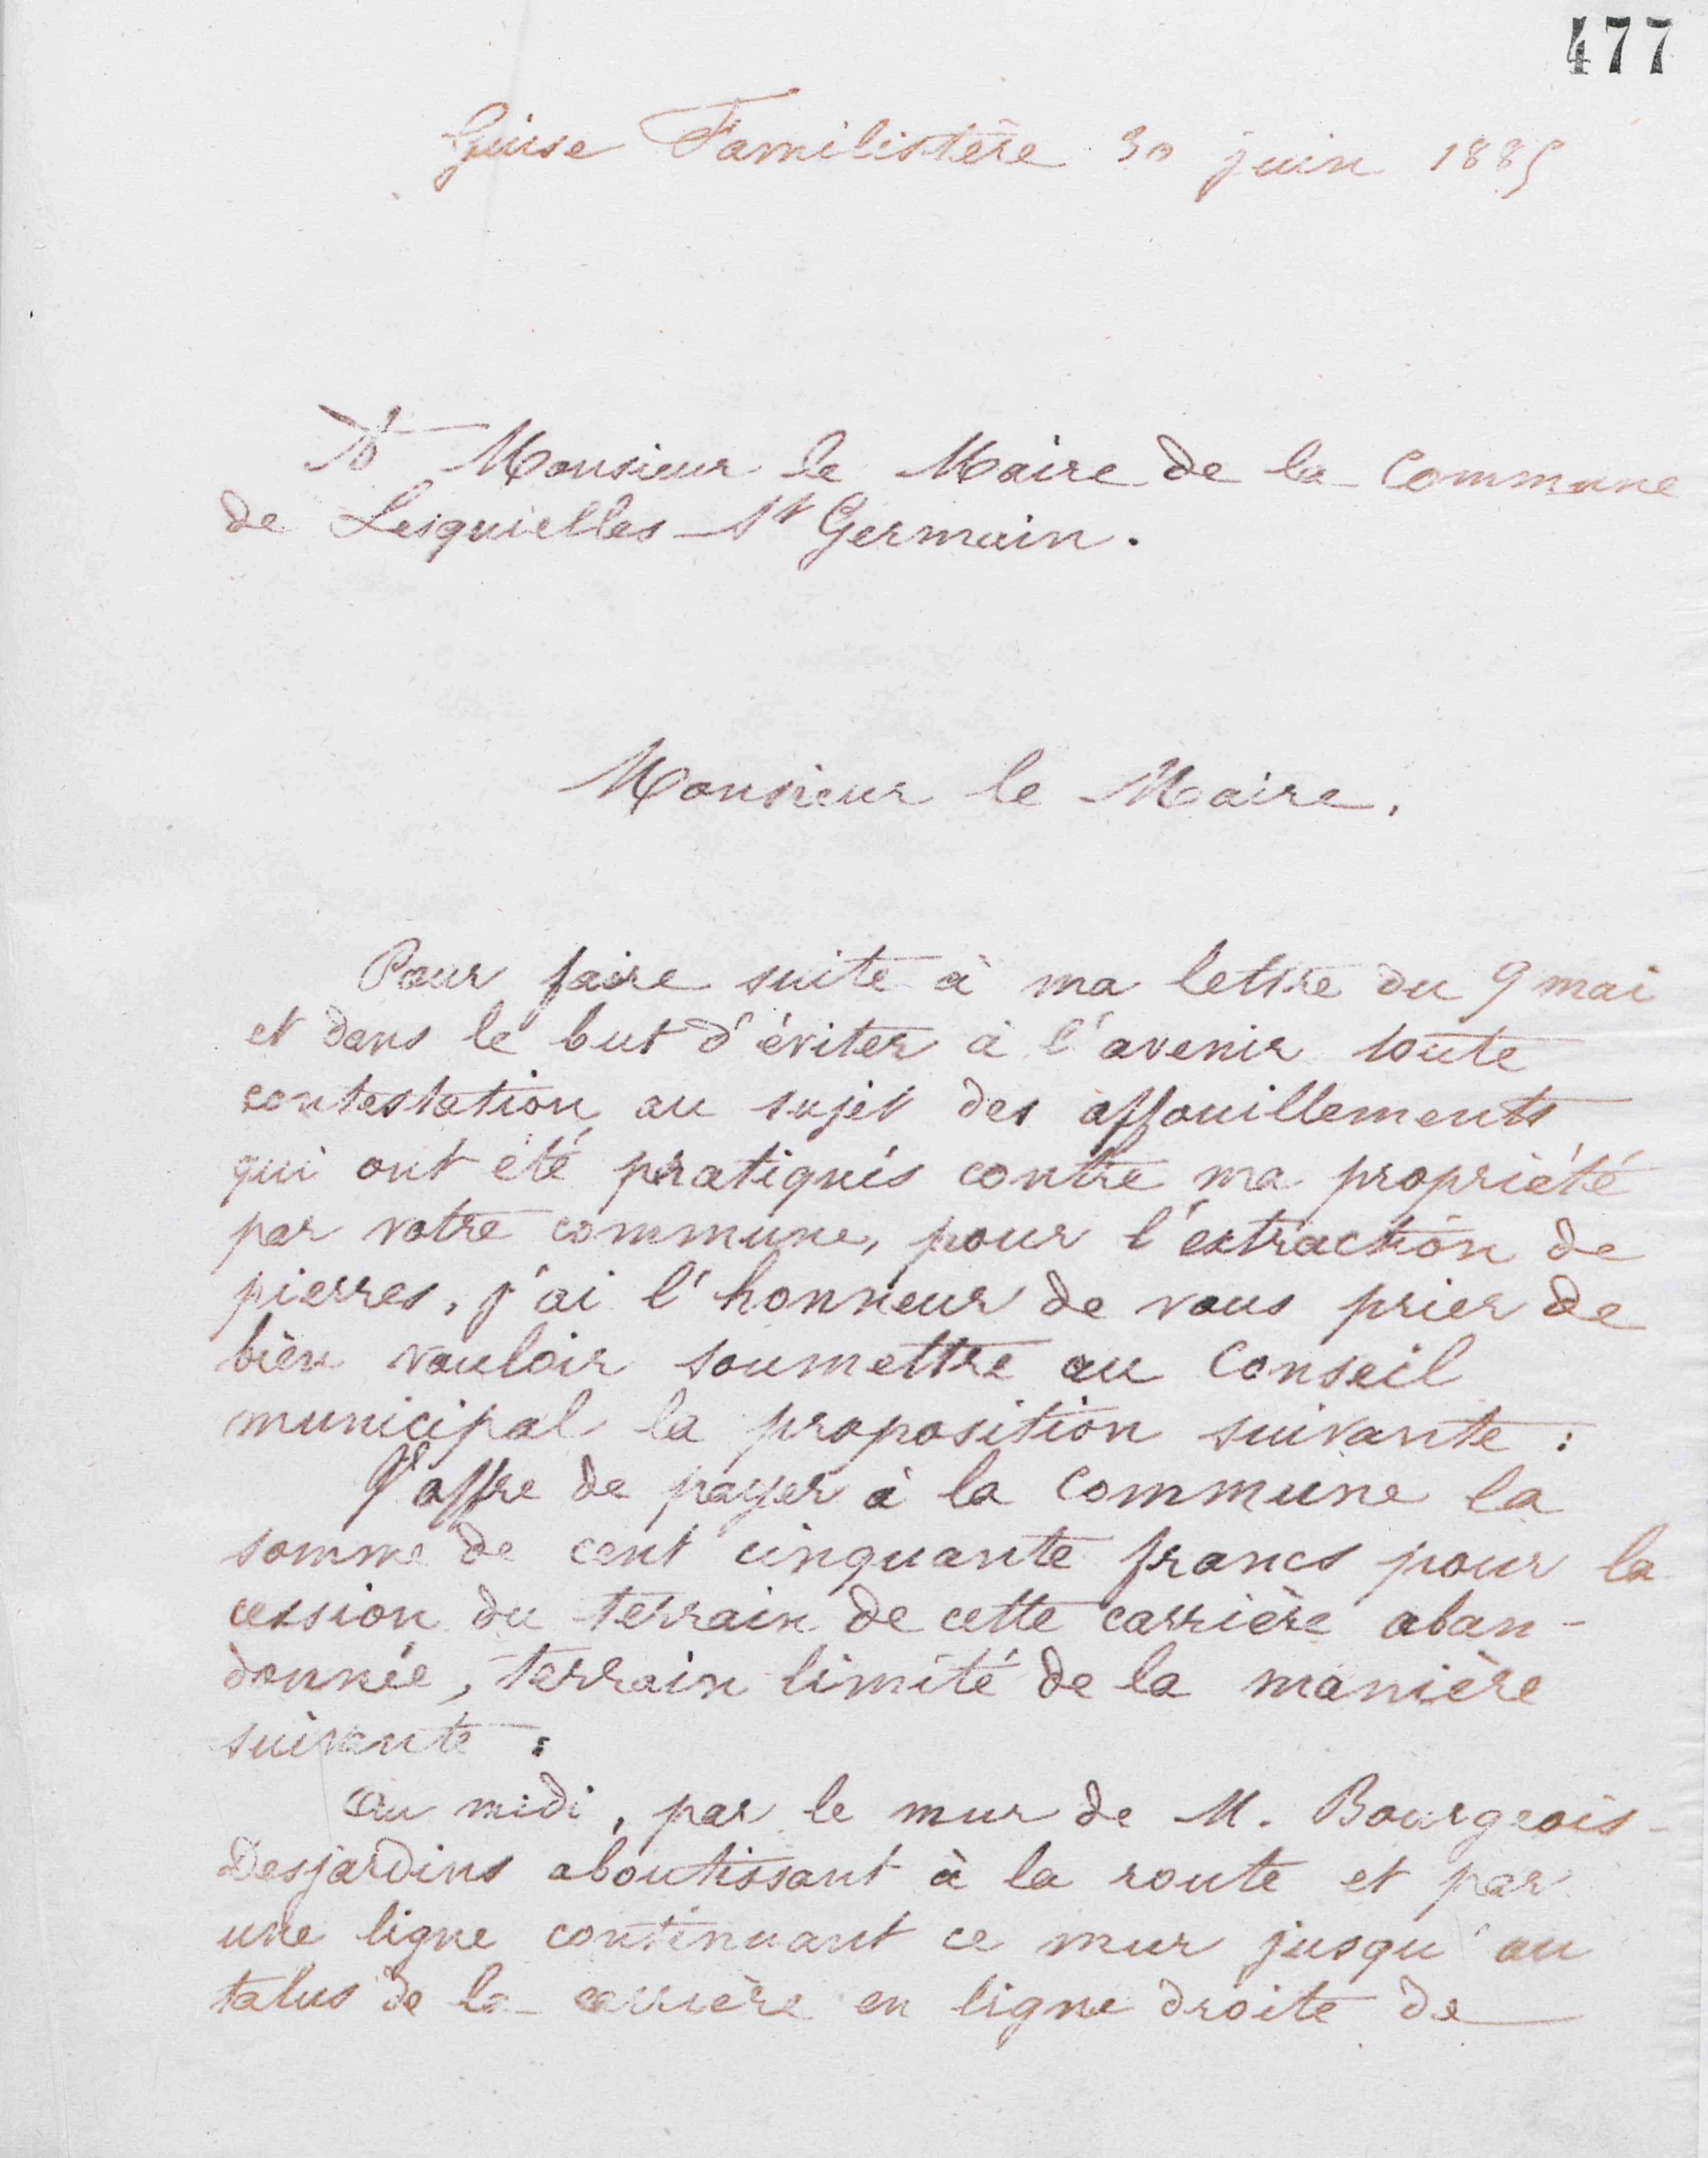 477
Guise Familistère 30 juin 1885
A Monsieur le Maire de la Commune
de Lesquielles St Germain.
Monsieur le Maire,
Pour faire suite à ma lettre du 9 mai
et dans le but d'éviter à l'avenir toute
contestation au sujet des affouillements
qui ont été pratiqués contre ma propriété
par votre commune, pour l'extraction de
pierres, j'ai l'honneur de vous prier de
bien vouloir soumettre au Conseil
municipal la proposition suivante :
J'offre de payer à la Commune la
somme de cent cinquante francs pour la
cession du terrain de cette carrière aban-
donnée, terrain limité de la manière
suivante :
Au midi, par le mur de M. Bourgeois-
Desjardins aboutissant à la route et par
une ligne continuant ce mur jusqu'au
talus de la carrière en ligne droite de